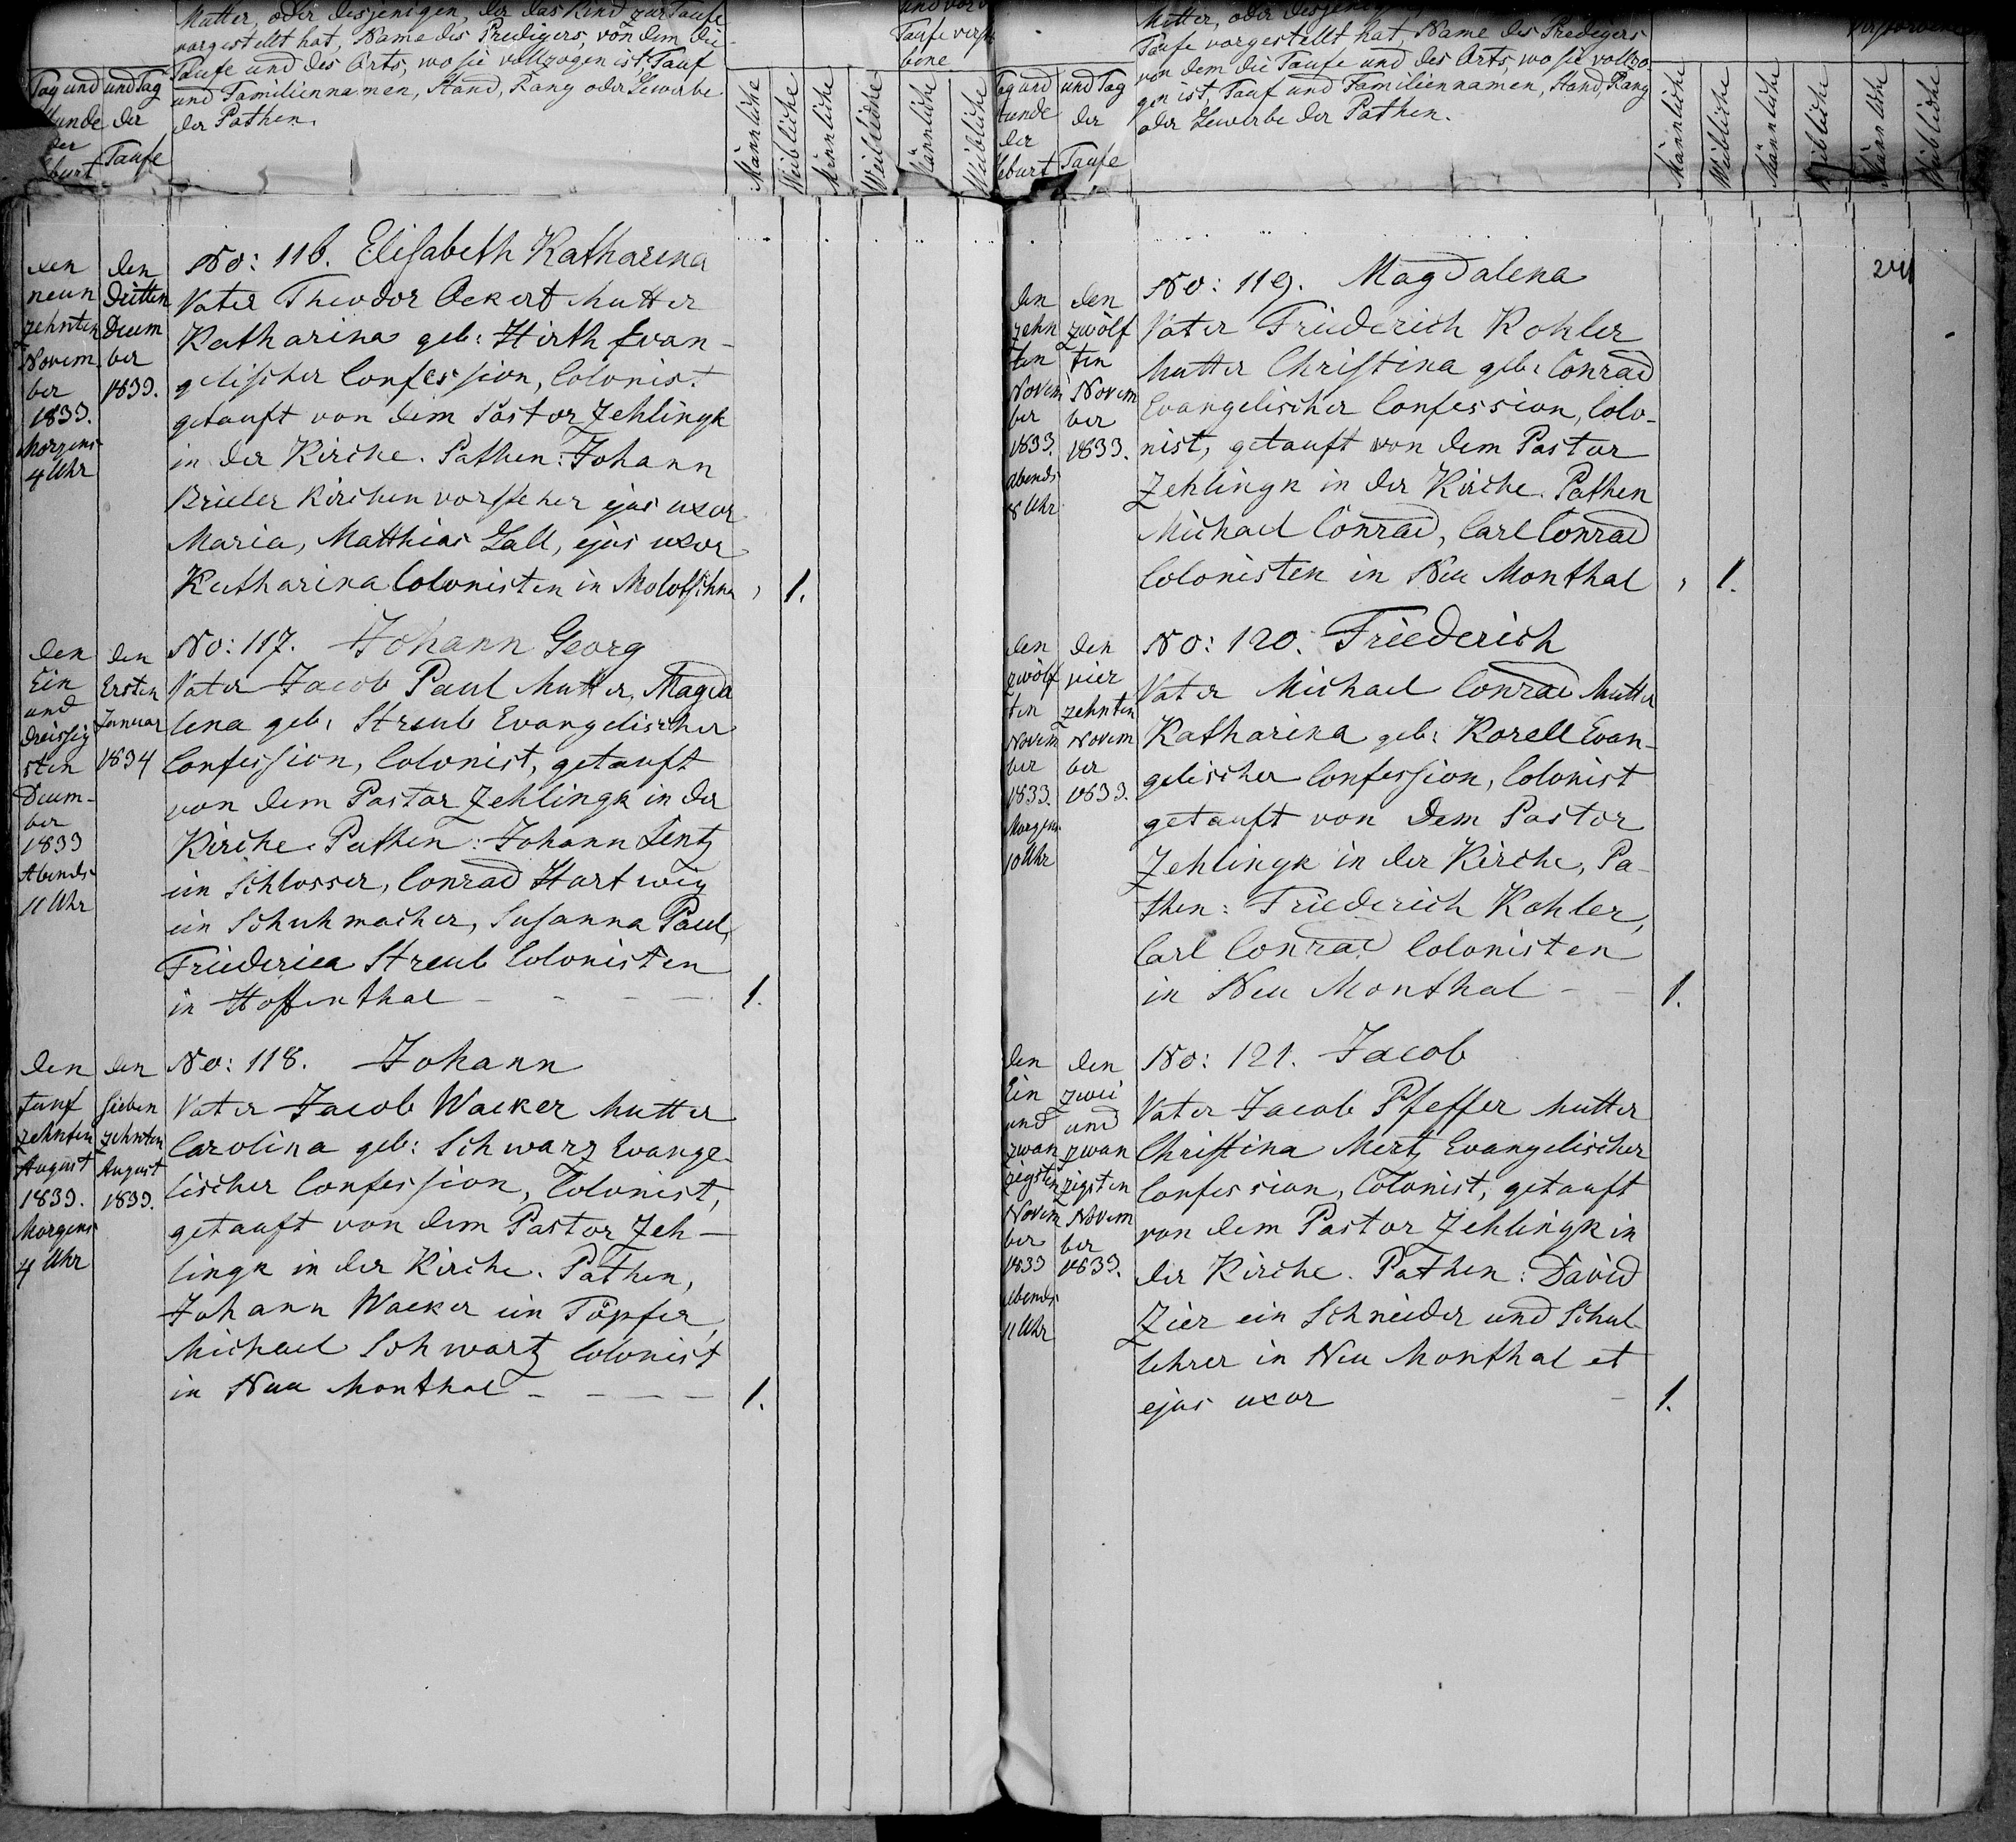 Mutter, oder desjenigen, der das Kind zur Taufe
vorgestellt hat, Name des Predigers, von dem die
Taufe und des Orts, wo sie vollzogen ist, Tauf
und Familiennamen, Stand, Rang oder Gewerbe
der Pathen.
Tag und
Stunde
der
Geburt
und Tag
der
Taufe
Taufe verstor
bene
Männliche
Weibliche
Männliche
Weibliche
Männliche
Weibliche
den
neun
zehnten
Novem
ber
1833.
Morgens
4 Uhr
den
dritten
Decem
ber
1833.
No: 116. Elisabeth Katharina
Vater Theodor Ackert Mutter
Katharina geb: Hirth Evan-
gelischer Confession, Colonist
getauft von dem Pastor Zehlingk
in der Kirche. Pathen: Johann
Brieler Kirchenvorsteher ejus uxor
Maria, Matthias Gall, ejus uxor
Katharina Colonisten in Molotschna , 1.
den
Ein
und
dreissig
sten
Decem-
ber
1833
Abends
11 Uhr
den
Ersten
Januar
1834
No: 117. Johann Georg
Vater Jacob Paul Mutter, Magda
lena geb: Streub Evangelischer
Confession, Colonist, getauft
von dem Pastor Zehlingk in der
Kirche. Pathen: Johann Lentz
ein Schlosser, Conrad Hartwig
ein Schuhmacher, Susanna Paul,
Friederica Streub Colonisten
in Hoffenthal - - - - 1.
den
funf
zehnten
August
1833.
Morgens
4 Uhr
den
sieben
zehnten
August
1833.
No: 118. Johann
Vater Jacob Wacker Mutter
Carolina geb: Schwarz Evange-
lischer Confession, Colonist,
getauft von dem Pastor Zeh-
lingk in der Kirche. Pathen,
Johann Wacker ein Töpfer,
Michael Schwartz Colonist
in Neu Monthal - - - - 1.
Mutter, oder desjenigen
Taufe vorgestellt hat, Name des Predigers
von dem die Taufe und des Orts, wo sie vollzo
gen ist, Tauf und Familiennamen, Stand, Rang
oder Gewerbe der Pathen.
Tag und
Stunde
der
Geburt
und Tag
der
Taufe
Verstorbene
Männliche
Weibliche
Männliche
Weibliche
Männliche
Weibliche
den
zehn
ten
Novem
ber
1833.
abends
8 Uhr
den
zwölf
ten
Novem
ber
1833.
No: 119. Magdalena
Vater Friederich Kohler
Mutter Christina geb: Conrad
Evangelischer Confession, Colo-
nist, getauft von dem Pastor
Zehlingk in der Kirche. Pathen
Michael Conrad, Carl Conrad
Colonisten in Neu Monthal , 1.
den
zwölf
ten
Novem
ber
1833.
Morgens
10 Uhr
den
vier
zehnten
Novem
ber
1833.
No: 120. Friederich
Vater Michael Conrad Mutter
Katharina geb: Korell Evan-
gelischer Confession, Colonist
getauft von dem Pastor
Zehlingk in der Kirche, Pa-
then: Friederich Kohler,
Carl Conrad Colonisten
in Neu Monthal - - 1.
den
Ein
und
zwan
zigsten
Novem
ber
1833
abends
11 Uhr
den
zwei
und
zwan
zigsten
Novem
ber
1833.
No: 121. Jacob
Vater Jacob Pfeffer Mutter
Christina Mertz Evangelischer
Confession, Colonist, getauft
von dem Pastor Zehlingk in
der Kirche. Pathen: David
Zier ein Schneider und Schul-
lehrer in Neu Monthal et
ejus uxor - 1.